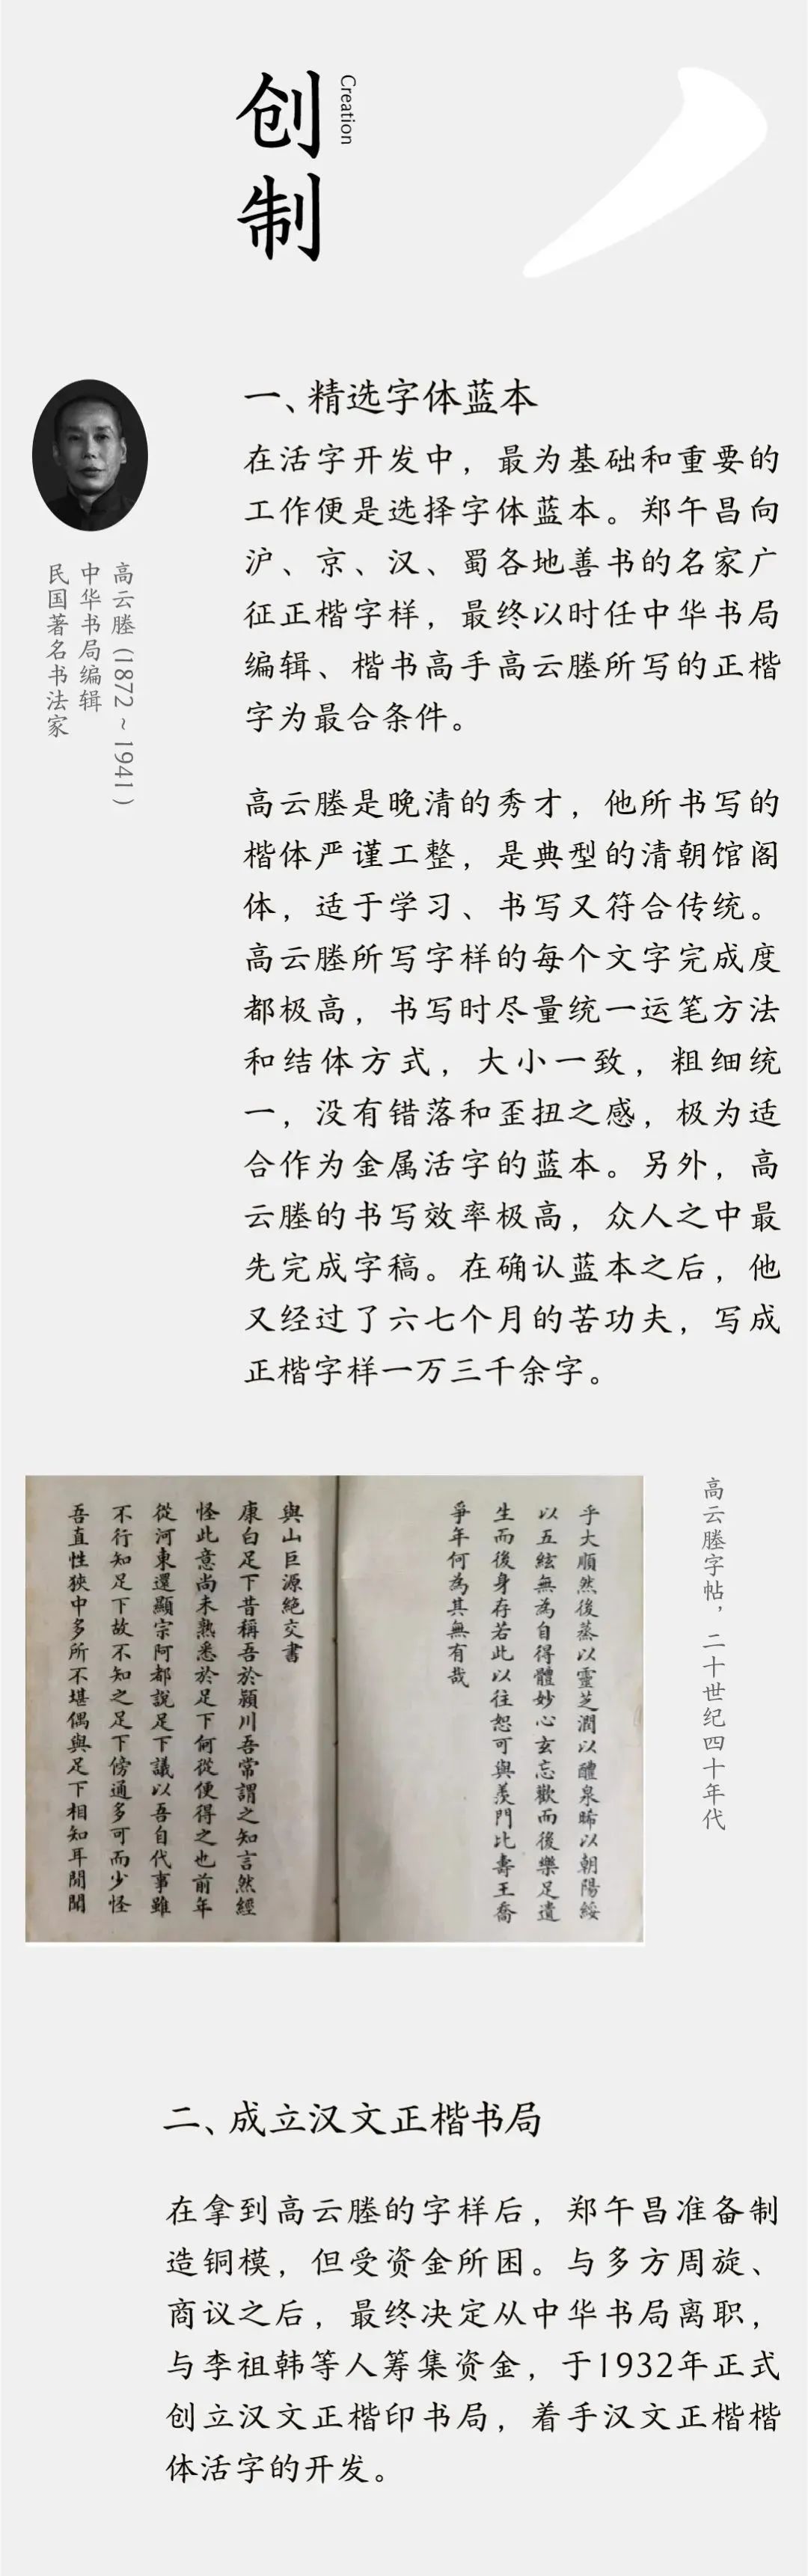 创制
Creation
一、精选字体蓝本
在活字开发中，最为基础和重要的
工作便是选择字体蓝本。郑午昌向
沪、京、汉、蜀各地善书的名家广
征正楷字样，最终以时任中华书局
编辑、楷书高手高云塍所写的正楷
字为最合条件。
高云塍（1872～1941）
中华书局编辑
民国著名书法家
高云塍是晚清的秀才，他所书写的
楷体严谨工整，是典型的清朝馆阁
体，适于学习、书写又符合传统。
高云塍所写字样的每个文字完成度
都极高，书写时尽量统一运笔方法
和结体方式，大小一致，粗细统
一，没有错落和歪扭之感，极为适
合作为金属活字的蓝本。另外，高
云塍的书写效率极高，众人之中最
先完成字稿。在确认蓝本之后，他
又经过了六七个月的苦功夫，写成
正楷字样一万三千余字。
高云塍字帖，二十世纪四十年代
乎大順然後蒸以靈芝潤以醴泉晞以朝陽綏
以五絃無為自得體妙心玄忘歡而後樂足遺
生而後身存若此以往恕可與羨門比壽王喬
爭年何為其無有哉
與山巨源絶交書
康白足下昔稱吾於潁川吾常謂之知言然經
怪此意尚未熟悉於足下何從便得之也前年
從河東還顯宗阿都說足下議以吾自代事雖
不行知足下故不知之足下傍通多可而少怪
吾直性狹中多所不堪偶與足下相知耳閒聞
二、成立汉文正楷书局
在拿到高云塍的字样后，郑午昌准备制
造铜模，但受资金所困。与多方周旋、
商议之后，最终决定从中华书局离职，
与李祖韩等人筹集资金，于1932年正式
创立汉文正楷印书局，着手汉文正楷楷
体活字的开发。